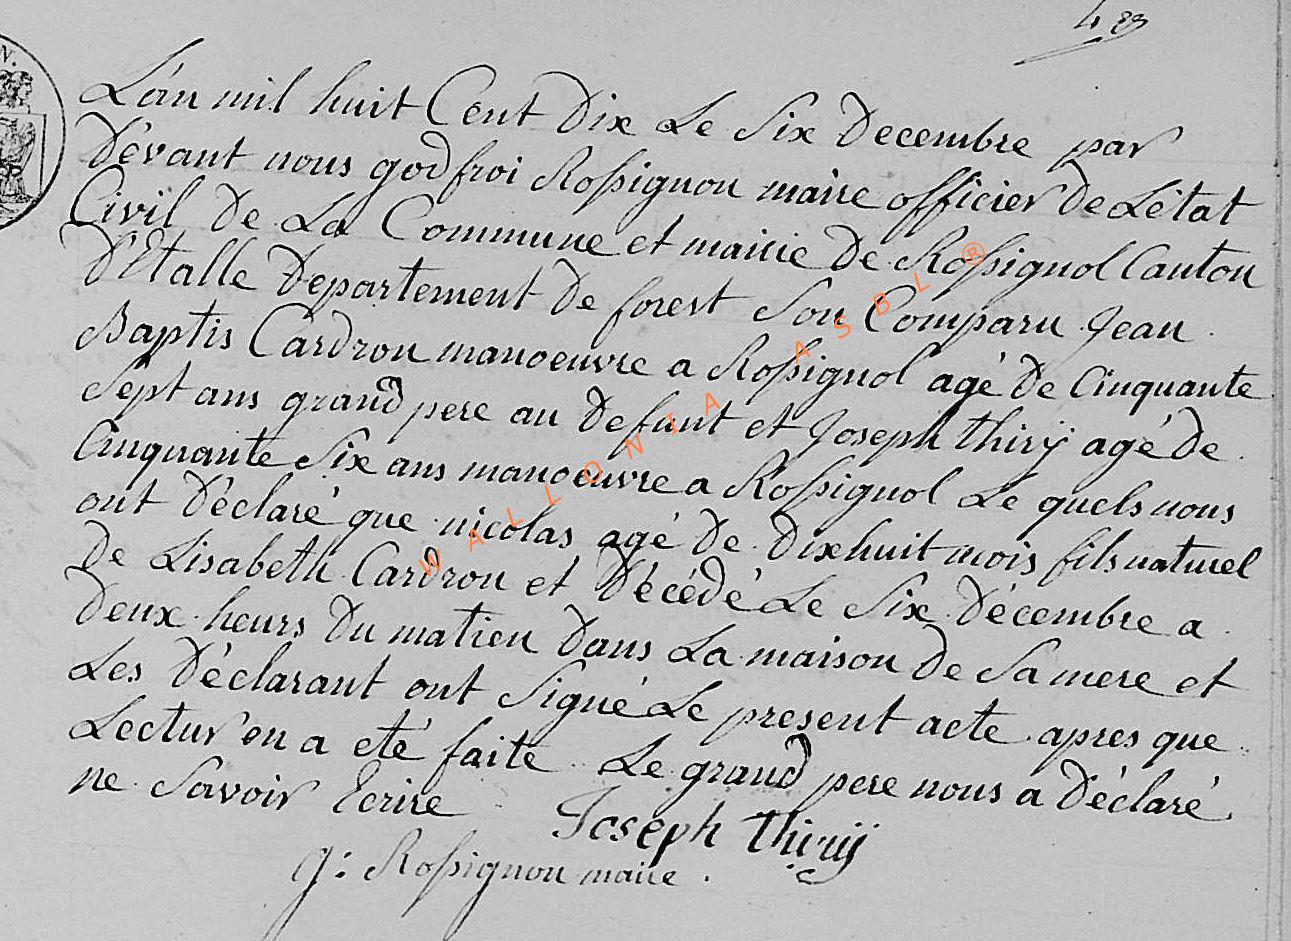 L'an mil huit Cent Dix Le Six Decembre par
Dévant nous godfroi Rossignon maire officier De L'état
Civil De La Commune et mairie De Rossignol Canton
D'Etalle Departement De forest Son Comparu Jean
Baptis Cardron manoeuvre a Rossignol agé De Cinquante
Sept ans grand pere au Defunt et Joseph thirÿ agé De
Cinquante Six ans manoeuvre a Rossignol Le quels nous
ont Déclaré que nicolas agé De Dixhuit mois fils naturel
De Lisabeth Cardron et Décédé Le Six Décembre a
Deux heurs Du matien Dans La maison De Sa mere et
Les Déclarant ont Signé Le present acte apres que
Lectur en a eté faite Le grand pere nous a Déclaré
ne Savoir Ecrire Joseph thirÿ
g: Rossignon maire.
WALLONIA ASBL ®